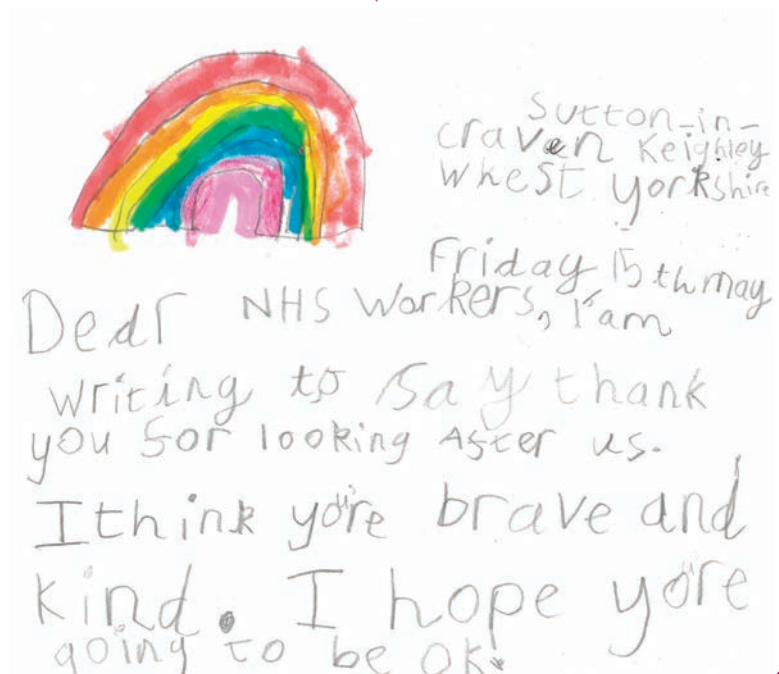 Sutton-in-
craven Keighley
Whest yorkshire
Friday 15th may
Dear NHS Workers, I'am
writing to say thank
you for looking After us.
I think you're brave and
kind. I hope you're
going to be ok.